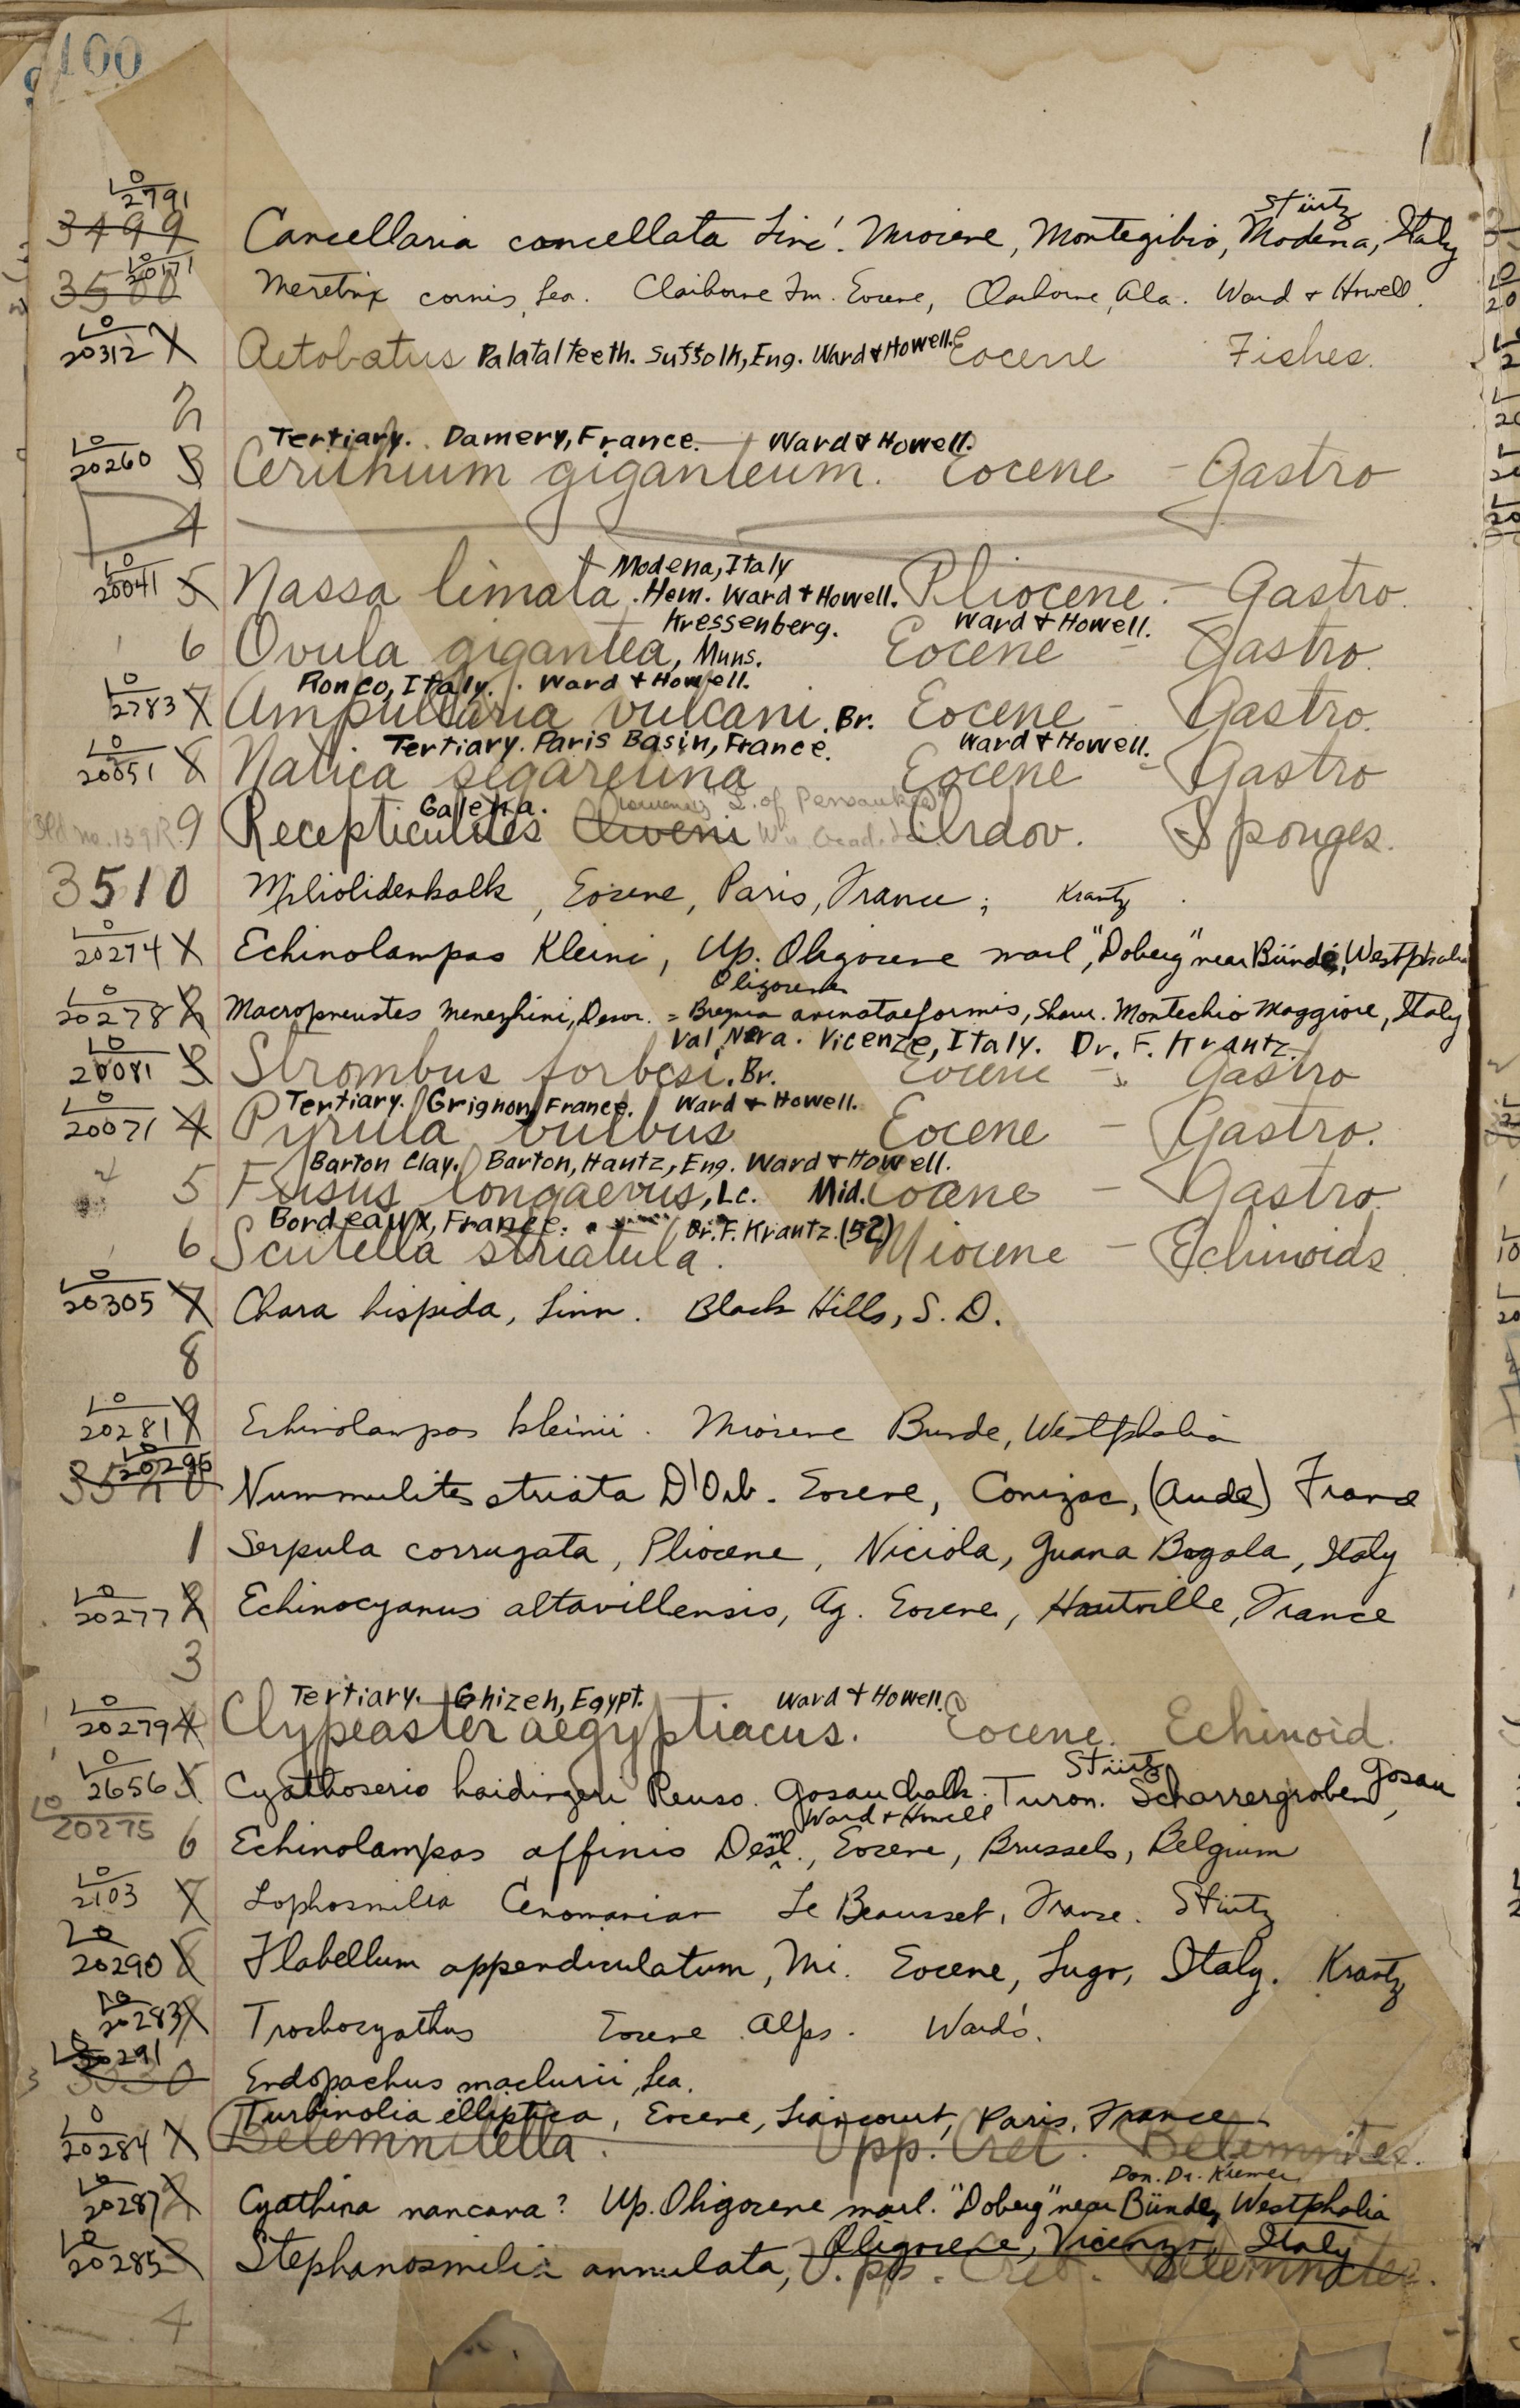 100
LO 2791
3499 Cancellaria cancellata Liné. Miocene, Montegibio, Modena, Italy Stürtz
LO 20171
3500 Meretrix cornis, Lea. Claiborne Fm. Eocene, Claiborne, Ala. Ward & Howell.
LO 20312 Aetobatus Palatal teeth. Suffolk, Eng. Ward & Howell. Eocene Fishes.
2
Tertiary. Damery, France. Ward & Howell.
LO 20260 3 Cerithium giganteum. Eocene - Gastro
4
Modena, Italy
LO 20041 5 Nassa limata. Hem. Ward & Howell. Pliocene - Gastro.
Kressenberg. Ward & Howell.
6 Ovula gigantea, Muns. Eocene - Gastro.
Ronco, Italy. Ward & Howell.
LO 2783 7 Ampullaria vulcani. Br. Eocene - Gastro.
Tertiary. Paris Basin, France. Ward & Howell.
LO 20051 8 Natica segaretina Eocene - Gastro
Galena.
9 Recepticulites Oweni Ordov. Sponges.
3510 Miliolidenkalk, Eocene, Paris, France; Krantz.
LO 20274 Echinolampas Kleini, Up. Oligocene marl, "Doberg" near Bünde, Westphalia
Oligocene
LO 20278 2 Macropneustes meneghini, Desor. = Breynia arinataeformis, Shaur. Montechio Maggiore, Italy
Val Nera. Vicenze, Italy. Dr. F. Krantz.
LO 20081 3 Strombus forbesi. Br. Eocene - Gastro
Tertiary. Grignon, France. Ward & Howell.
LO 20071 4 Pyrula bulbus Eocene - Gastro.
Barton Clay. Barton, Hantz, Eng. Ward & Howell.
5 Fusus longaevus, Lc. Mid. Eocene - Gastro.
Bordeaux, France. Dr. F. Krantz. (52)
6 Scutella striatula. Miocene - Echinoids
LO 20305 7 Chara hispida, Linn. Black Hills, S. D.
8
LO 20281 9 Echinolampas kleinii. Miocene Bunde, Westphalia
LO 20296
3520 Nummulites striata D'Orb. Eocene, Conizac, (Aude) France
1 Serpula corrugata, Pliocene, Niciola, Guana Bogala, Italy
LO 20277 2 Echinocyanus altavillensis, Ag. Eocene, Hautville, France
3
Tertiary. Ghizeh, Egypt. Ward & Howell.
LO 20279 4 Clypeaster aegyptiacus. Eocene. Echinoid.
Stürtz
LO 2656 5 Cyathoseris haidingeri Reuss. Gosau Chalk. Turon. Scharrergraben, Gosau
Ward & Howell
LO 20275 6 Echinolampas affinis Desml., Eocene, Brussels, Belgium
LO 2103 7 Lophosmilia Cenomanian Le Beausset, France. Stürtz
LO 20290 8 Flabellum appendiculatum, Mi. Eocene, Lugo, Italy. Krantz
LO 20283 Trochocyathus Eocene Alps. Ward's.
LO 20291
3530 Endopachus maclurii, Lea.
Turbinolia elliptica, Eocene, Liancourt, Paris, France
LO 20284 Belemnitella. Upp. Cret. Belemnites.
Don. Dr. Kremer
LO 20287 2 Cyathina nancana? Up. Oligocene marl. "Doberg" near Bünde, Westphalia
Oligocene, Vicenza, Italy
LO 20285 3 Stephanosmilia annulata, Upp. Cret. Belemnites.
4